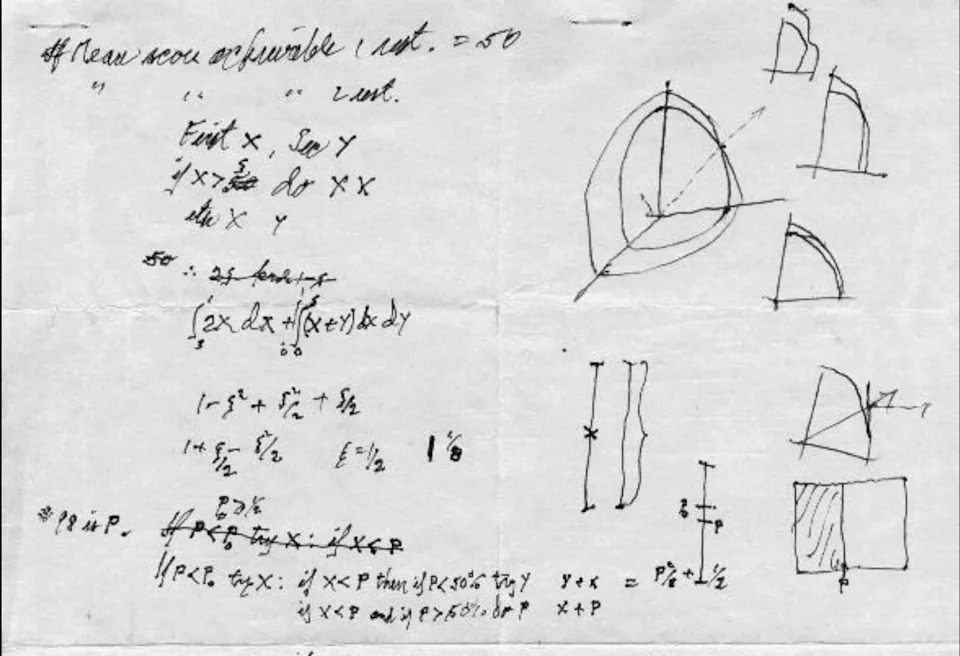 If Mean score achievable 1 rest. = 50
" " " 2 rest.
First X, Sec Y
if X > ξ do X X
else X Y
50 ∴
∫ 2x dx + ∫∫ (x+y) dx dy
1 - ξ² + ξ²/2 + ξ/2
1 + ξ/2 - ξ²/2 ξ = 1/2 1 1/8
P₀ > 1/2
If P < P₀ try X : if X < P
If P < P₀ try X : if X < P then if P < 50% try Y Y + X = P²/2 + 1/2
if X < P and if P > 50% do P X + P
X
P₀
P
P